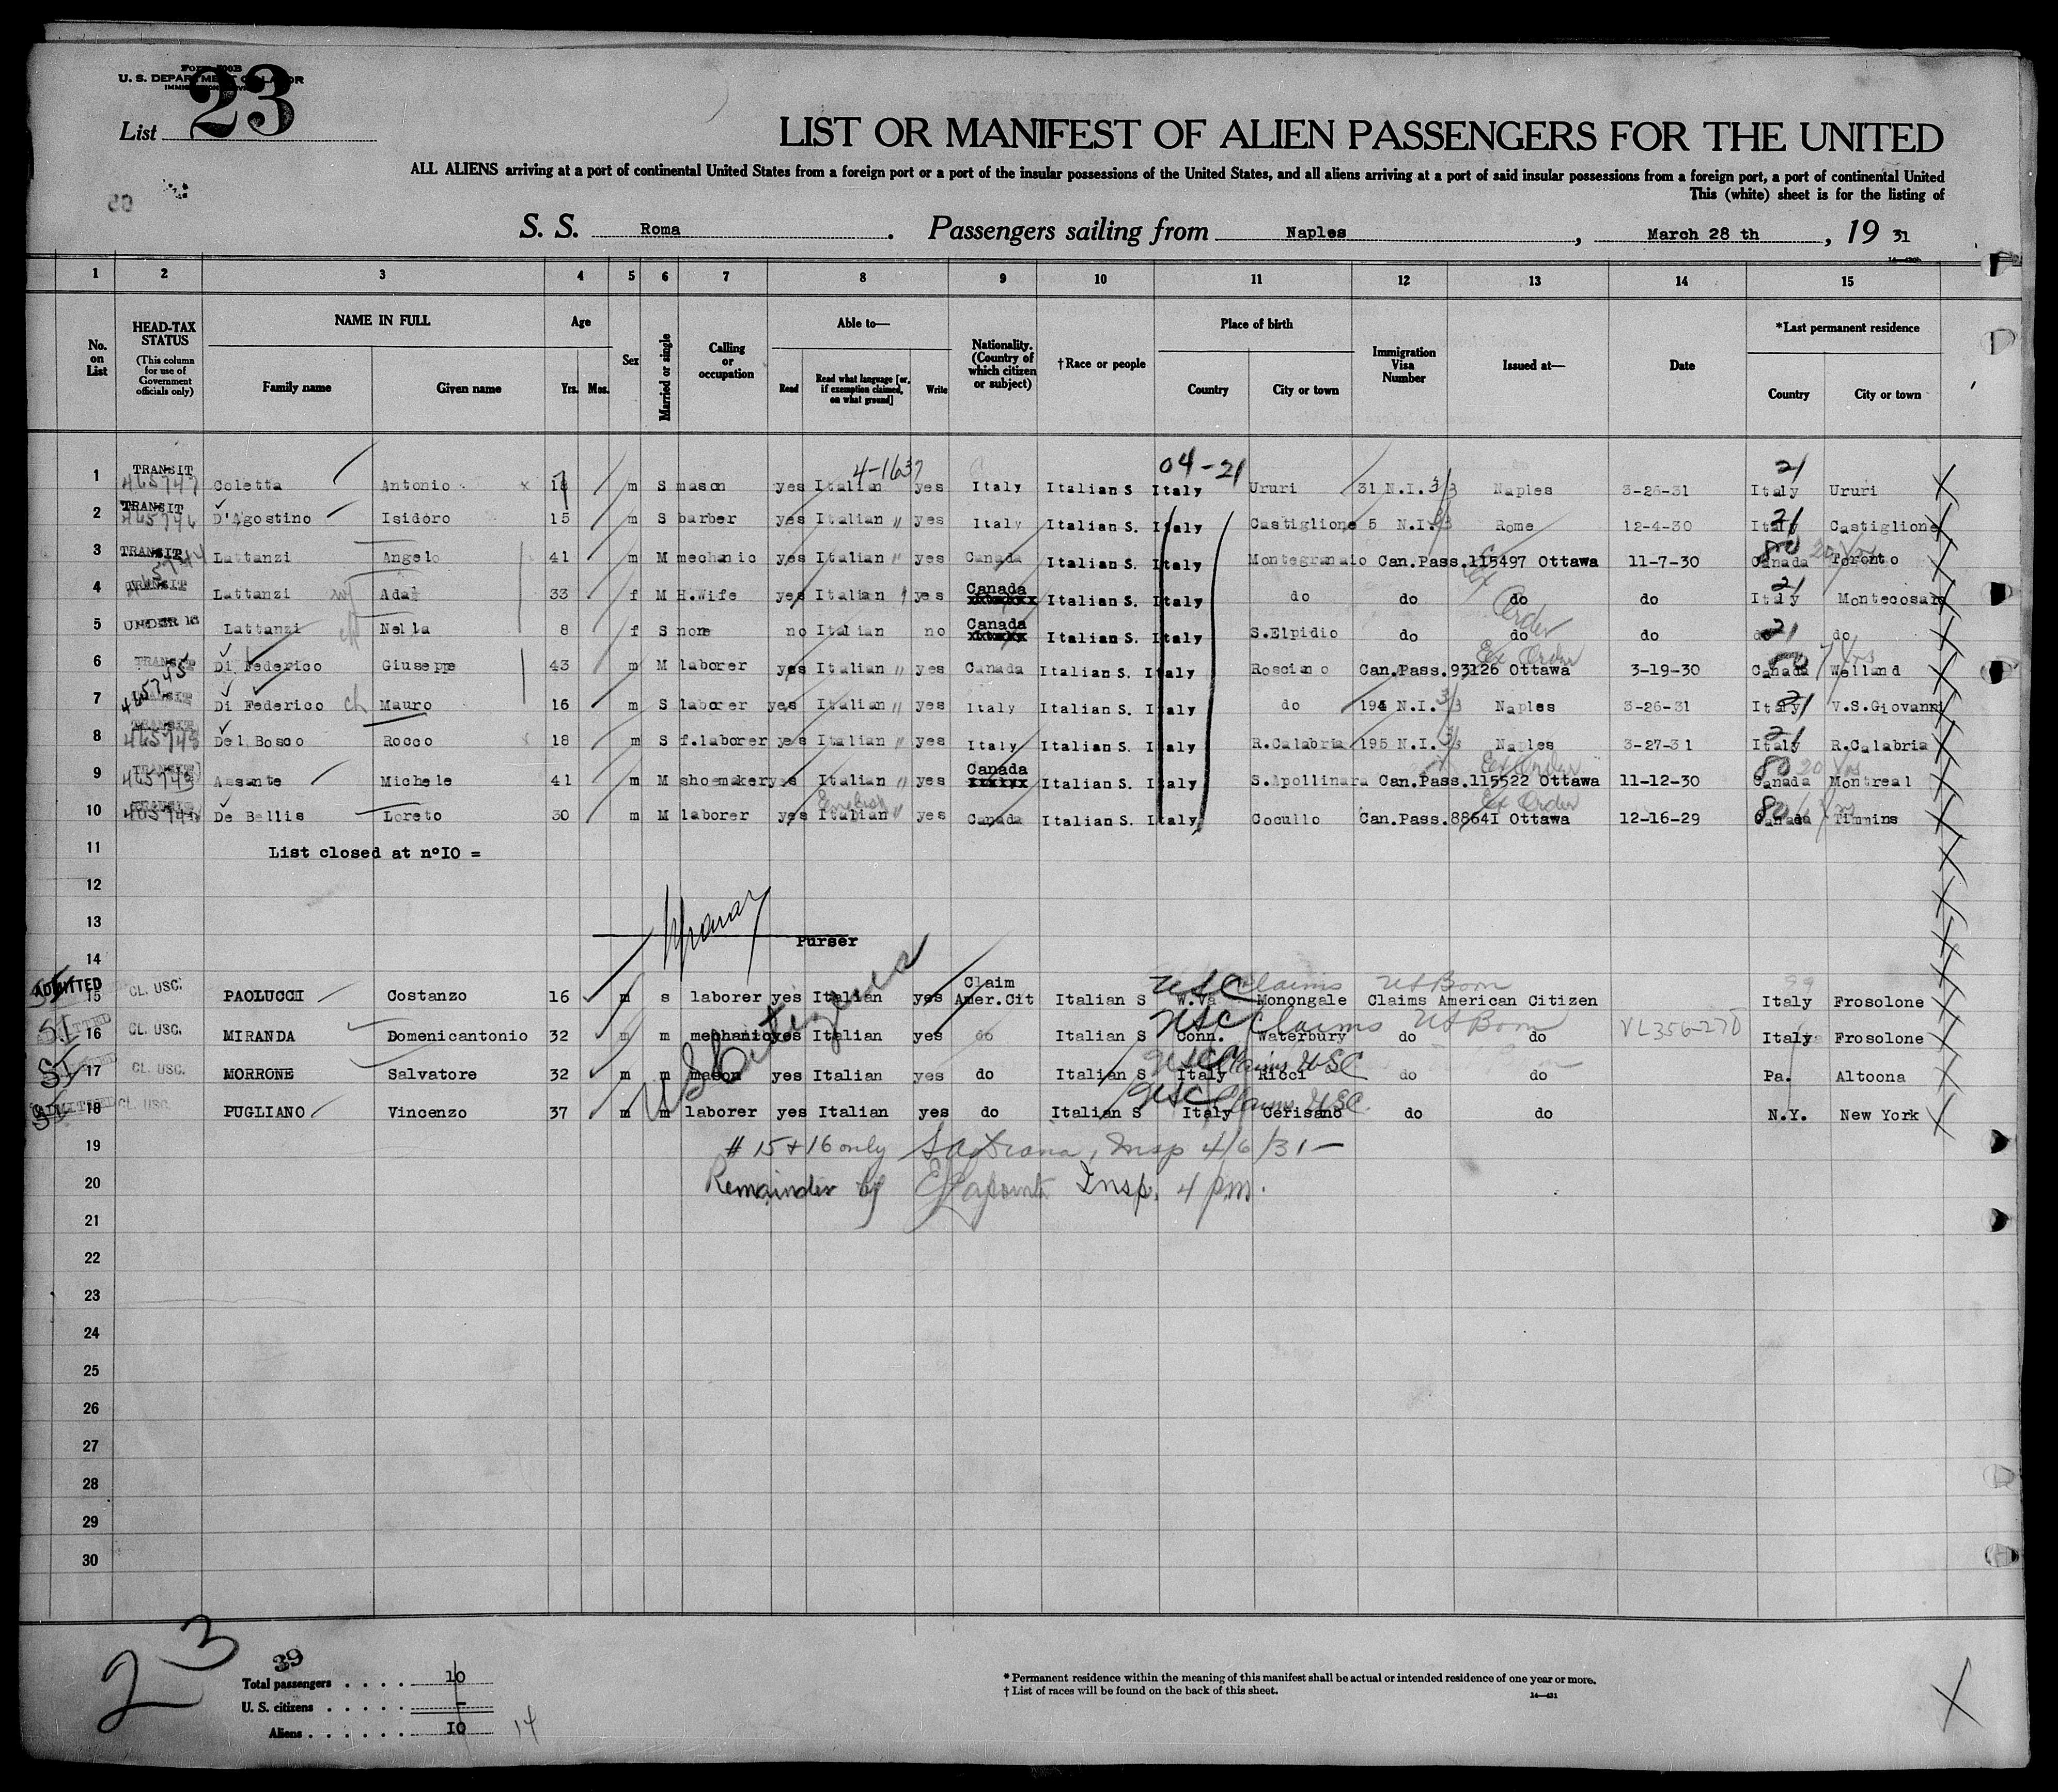 Form 500B
U. S. DEPARTMENT OF LABOR
List 23
LIST OR MANIFEST OF ALIEN PASSENGERS FOR THE UNITED
ALL ALIENS arriving at a port of continental United States from a foreign port or a port of the insular possessions of the United States, and all aliens arriving at a port of said insular possessions from a foreign port, a port of continental United
This (white) sheet is for the listing of
S. S. Roma. Passengers sailing from Naples, March 28 th, 19 31
1 2 3 4 5 6 7 8 9 10 11 12 13 14 15
No. on List
HEAD-TAX STATUS (This column for use of Government officials only)
NAME IN FULL Family name Given name
Age Yrs. Mos.
Sex
Married or single
Calling or occupation
Able to— Read Read what language [or, if exemption claimed, on what ground] Write
Nationality. (Country of which citizen or subject)
†Race or people
Place of birth Country City or town
Immigration Visa Number
Issued at—
Date
*Last permanent residence Country City or town
4-1637 04-21 21
1 TRANSIT 465747 Coletta Antonio m S mason yes Italian yes Italy Italian S Italy Ururi 31 N.I. 3/3 Naples 3-26-31 Italy Ururi
2 TRANSIT 465746 D'Agostino Isidoro 15 m S barber yes Italian " yes Italy Italian S. Italy Castiglione 5 N.I. Rome 12-4-30 Italy 21 Castiglione
3 TRANSIT Lattanzi Angelo 41 m M mechanic yes Italian " yes Canada Italian S. Italy Montegranaio Can.Pass.115497 Ottawa 11-7-30 Canada 80 Toronto
4 TRANSIT Lattanzi wf Ada 33 f M H.Wife yes Italian " yes Canada Italian S. Italy do do do do Italy 21 Montecosaro
Ex Order
5 UNDER 16 Lattanzi Nella 8 f S none no Italian no Canada Italian S. Italy S.Elpidio do do do do 21 do
6 TRANSIT Di Federico Giuseppe 43 m M laborer yes Italian " yes Canada Italian S. Italy Rosciano Can.Pass.93126 Ottawa Ex Order 3-19-30 Canada 80 Welland
7 465745 TRANSIT Di Federico ch Mauro 16 m S laborer yes Italian " yes Italy Italian S. Italy do 194 N.I. 3/3 Naples 3-26-31 Italy 21 V.S.Giovanni
8 TRANSIT 465748 Del Bosco Rocco 18 m S f.laborer yes Italian " yes Italy Italian S. Italy R.Calabria 195 N.I. 3/3 Naples 3-27-31 Italy 21 R.Calabria
9 TRANSIT Assante Michele 41 m M shoemaker yes Italian " yes Canada Italian S. Italy S.Apollinara Can.Pass.115522 Ottawa Ex Order 11-12-30 Canada 80 20 yrs Montreal
10 TRANSIT De Bellis Loreto 30 m M laborer yes English Italian " yes Canada Italian S. Italy Cocullo Can.Pass.88641 Ottawa Ex Order 12-16-29 Canada 80 Timmins
11 List closed at n°10 =
12
13
Purser
14
US Citizens
15 ADMITTED CL. USC. PAOLUCCI Costanzo 16 m s laborer yes Italian yes Claim Amer.Cit Italian S W.Va Monongale Claims American Citizen USC Claims US Born Italy Frosolone
16 SI CL. USC. MIRANDA Domenicantonio 32 m m mechanic yes Italian yes do Italian S Conn. Waterbury do do USC Claims US Born VL356-270 Italy Frosolone
17 SI CL. USC. MORRONE Salvatore 32 m m mason yes Italian yes do Italian S Italy Ricci do do USC Claims USC Pa. Altoona
18 SI ADMITTED CL. USC. PUGLIANO Vincenzo 37 m m laborer yes Italian yes do Italian S Italy Cerisano do do USC Claims USC N.Y. New York
19 # 15 + 16 only Insp 4/6/31 —
20 Remainder by Insp. 4 pm.
21
22
23
24
25
26
27
28
29
30
23
39
Total passengers . . . . 10
U. S. citizens . . . . . -
Aliens . . . . . . 10 14
* Permanent residence within the meaning of this manifest shall be actual or intended residence of one year or more.
† List of races will be found on the back of this sheet.
14—431